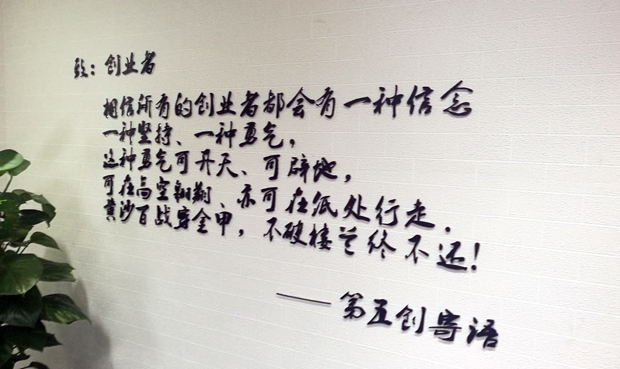 致：创业者
相信所有的创业者都会有一种信念
一种坚持、一种勇气，
这种勇气可开天、可辟地，
可在高空翱翔、亦可在低处行走．
黄沙百战穿金甲，不破楼兰终不还！
——第五创寄语